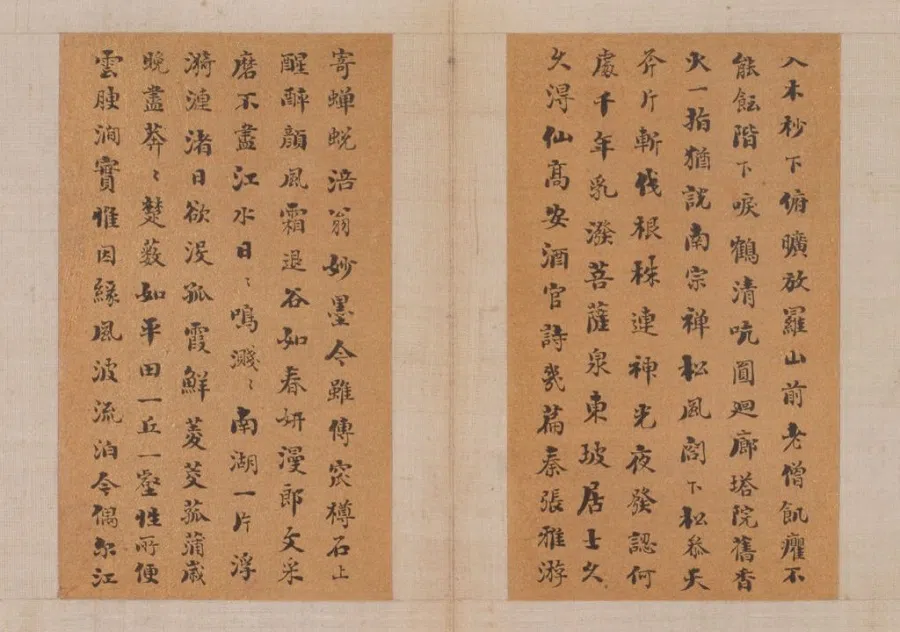 入木杪下俯曠放羅山前老僧飢癯不
能飪階下唳鶴清吭圓廻廊塔院舊香
火一指猶說南宗禅松風閣下松叅天
斧斤斬伐根株連神光夜發認何
處千年乳潑菩薩泉東坡居士久
久淂仙高安酒官詩幾篇秦張雅游
寄蟬蛻涪翁妙墨今雖傳窊樽石上
醒醉顏風霜退谷如春妍漫郎文采
磨不盡江水日〻鳴濺〻南湖一片浮
漪漣渚日欲没孤霞鮮菱芰菰蒲歲
晚盡莽〻楚薮如平田一丘一壑性所便
雲腴澗實惟因緣風波流泊今偶尔江